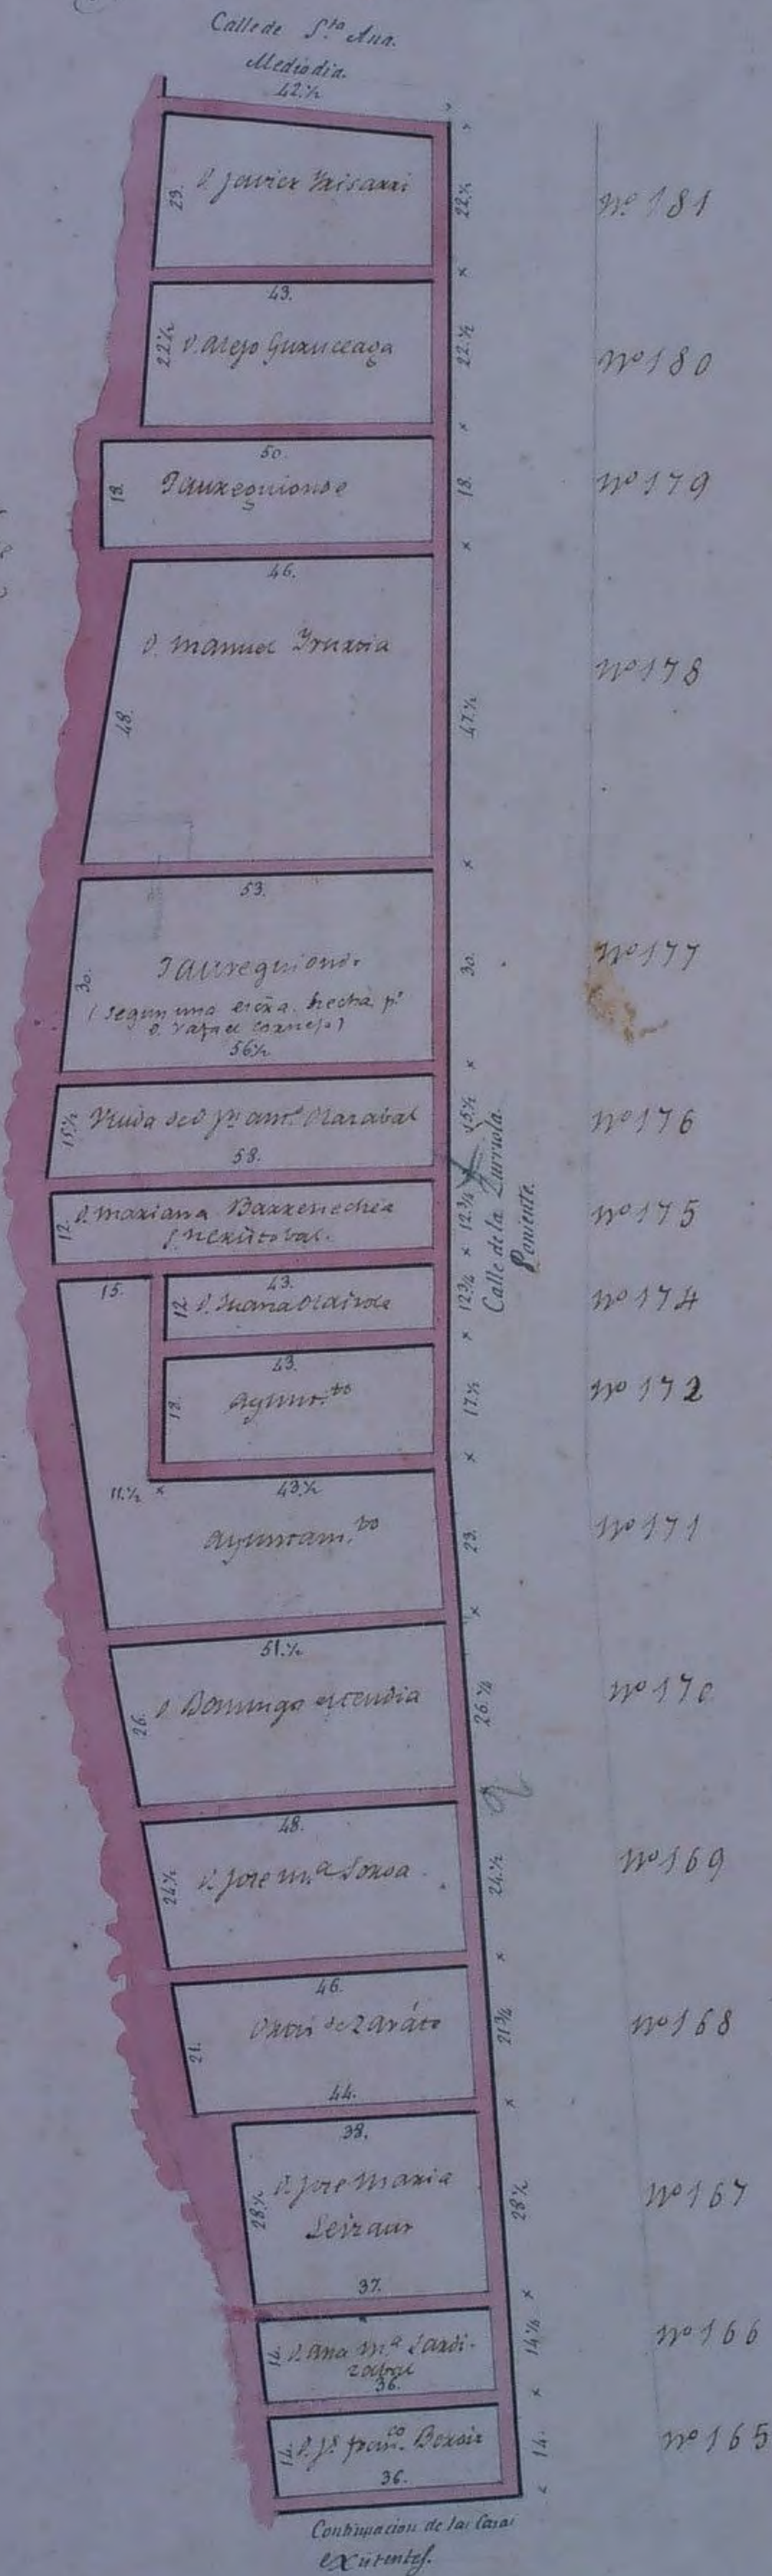 Calle de S.ta Ana.
Mediodia.
42.½
23.
D. Javier Yrisarri
22.½
Nº 181
43.
22½
D. Alejo Guruceaga
22.½
Nº 180
50.
18.
Jaureguiondo
18.
Nº 179
46.
D. Manuel
48.
47.½
Nº 178
53.
30.
Jaureguiondo
30.
(Segun una escra. hecha pr
D. Rafael Cornejo)
56½
Nº 177
15½
Viuda de D. Jn Antº Olazabal
15½
58.
Nº 176
12.
D. Mariana Barrenechea
12.¾
Nº 175
Calle de la Zurriola.
Poniente.
15.
43.
12
D. Juana
12¾
Nº 174
43.
18.
Ayunt.to
17.½
Nº 172
11.½
43.½
Ayuntam.to
23.
Nº 171
51.½
26.
D. Domingo
26.½
Nº 170
48.
24½
D. Jose M.a Soroa
24.½
Nº 169
46.
21.
Ortiz de Zarate
21¾
44.
Nº 168
38.
28½
D. Jose Maria
Leizaur
28½
37.
Nº 167
14.
D. Ana Mª Lardi-
zabal
14½
36.
Nº 166
14.
D. Jn Fran.co
14.
36.
Nº 165
Continuacion de las Casas
existentes.